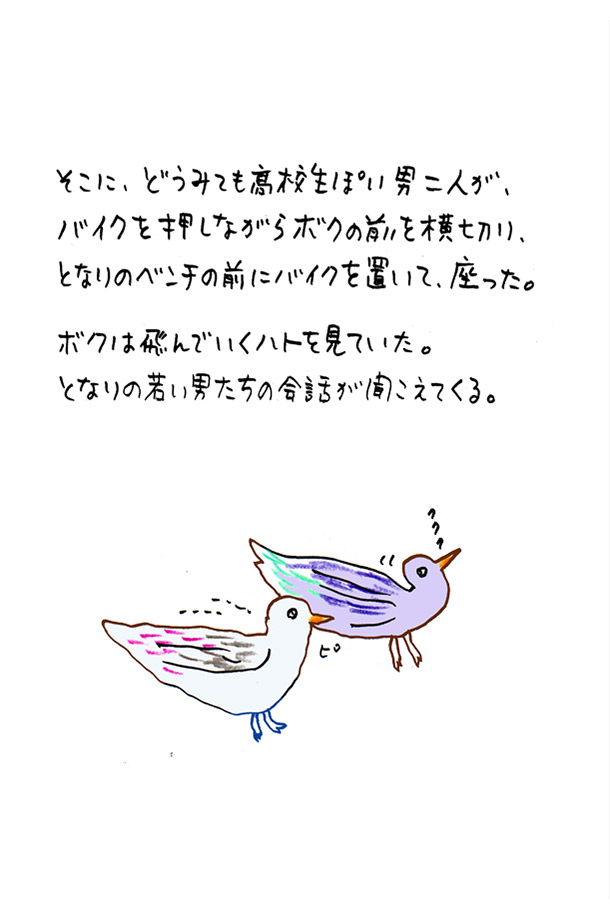 そこに、どうみても高校生ぽい男二人が、
バイクを押しながらボクの前を横切り、
となりのベンチの前にバイクを置いて、座った。
ボクは飛んでいくハトを見ていた。
となりの若い男たちの会話が聞こえてくる。
ピ